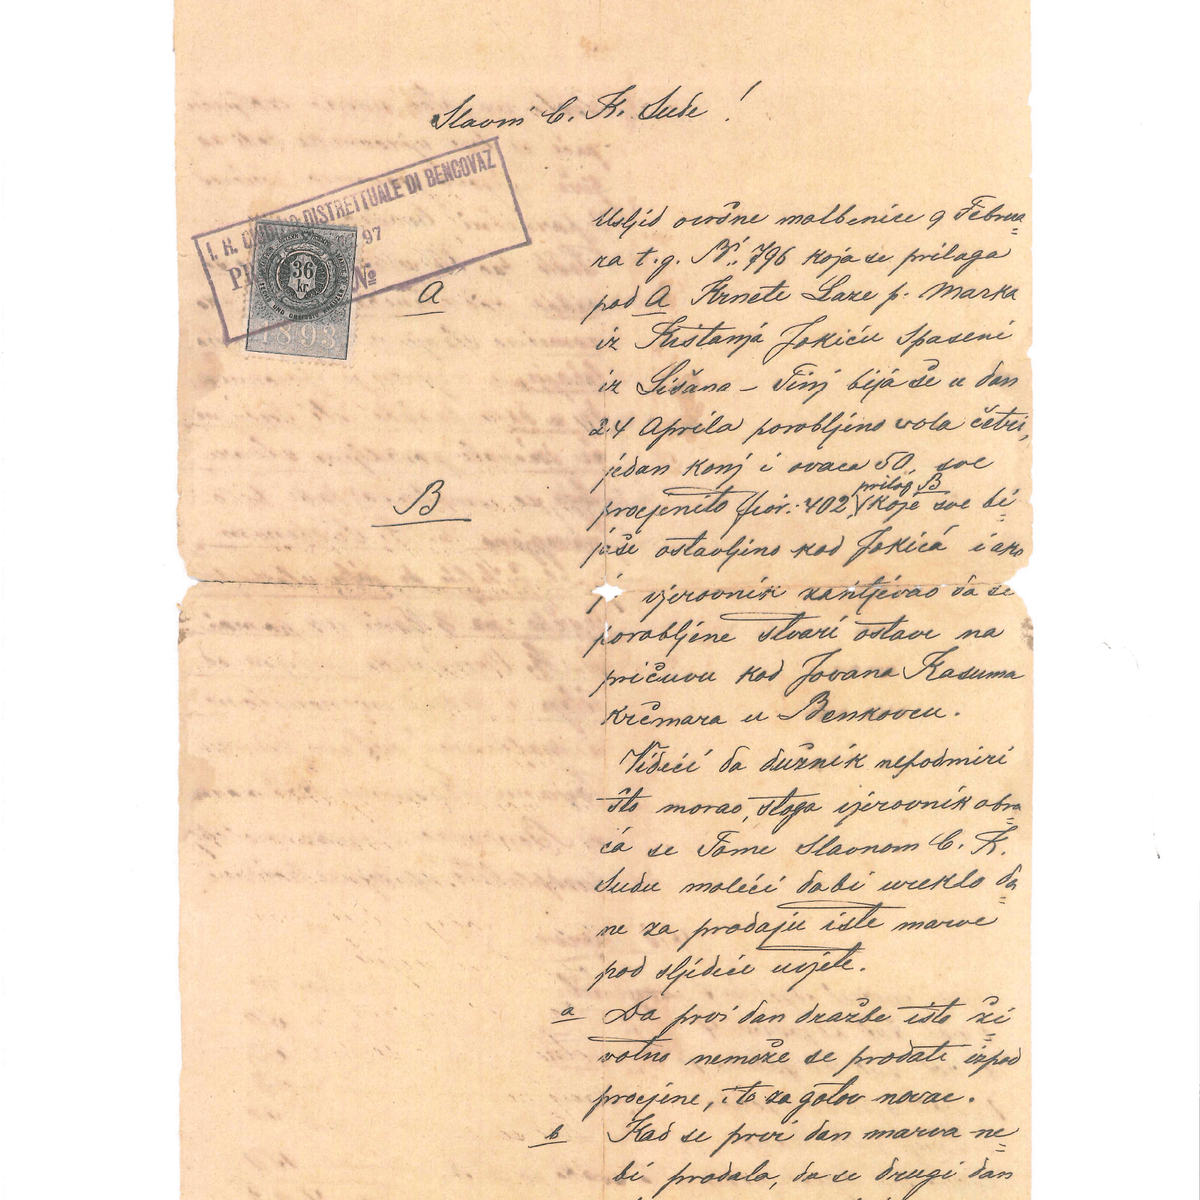 Slavni C. K. Sude!
I. R. GIUDIZIO DISTRETTUALE DI BENCOVAZ
97
PR Nº
36
kr
1893
A
Usljid ovršne molbenice 9 Februa=
ra t.g. Nº: 796 koja se prilaga
pod A Krnete Laze p. Marka
iz Kistanja Jokiću Spaseni
iz Lišana – Tinj bijaše u dan
24 Aprila porobljeno vola četri,
jedan konj i ovaca 50, sve
prilog B
procjenito fior: 402, koje sve bi=
B
jaše ostavljino kod Jokića i ako
je vjerovnik zahtjevao da se
porobljene stvari ostave na
pričuvu kod Jovana Kasuma
krčmara u Benkovcu.
Videći da dužnik nepodmiri
što morao, stoga vjerovnik obra=
ća se Tome Slavnom C. K.
Sudu moleći dabi ureklo da=
ne za prodaju iste marve
pod sljidiće uvjete.
a Da prvi dan dražbe isto ži=
votno nemože se prodati izpod
procjene, i to za gotov novac.
b Kad se prvi dan marva ne=
bi prodala, da se drugi dan